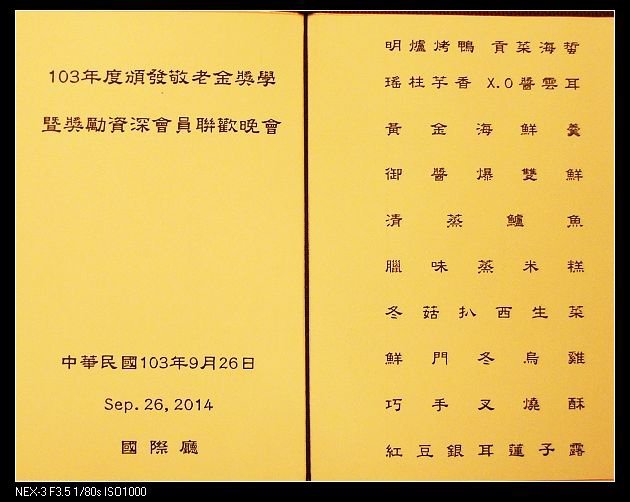 103年度頒發敬老金獎學
暨獎勵資深會員聯歡晚會
中華民國103年9月26日
Sep. 26, 2014
國際廳
明爐烤鴨 貢菜海蜇
瑤柱芋香 X.O醬雲耳
黃金海鮮羹
御醬爆雙鮮
清蒸鱸魚
臘味蒸米糕
冬菇扒西生菜
鮮門冬烏雞
巧手叉燒酥
紅豆銀耳蓮子露
NEX-3 F3.5 1/80s ISO1000